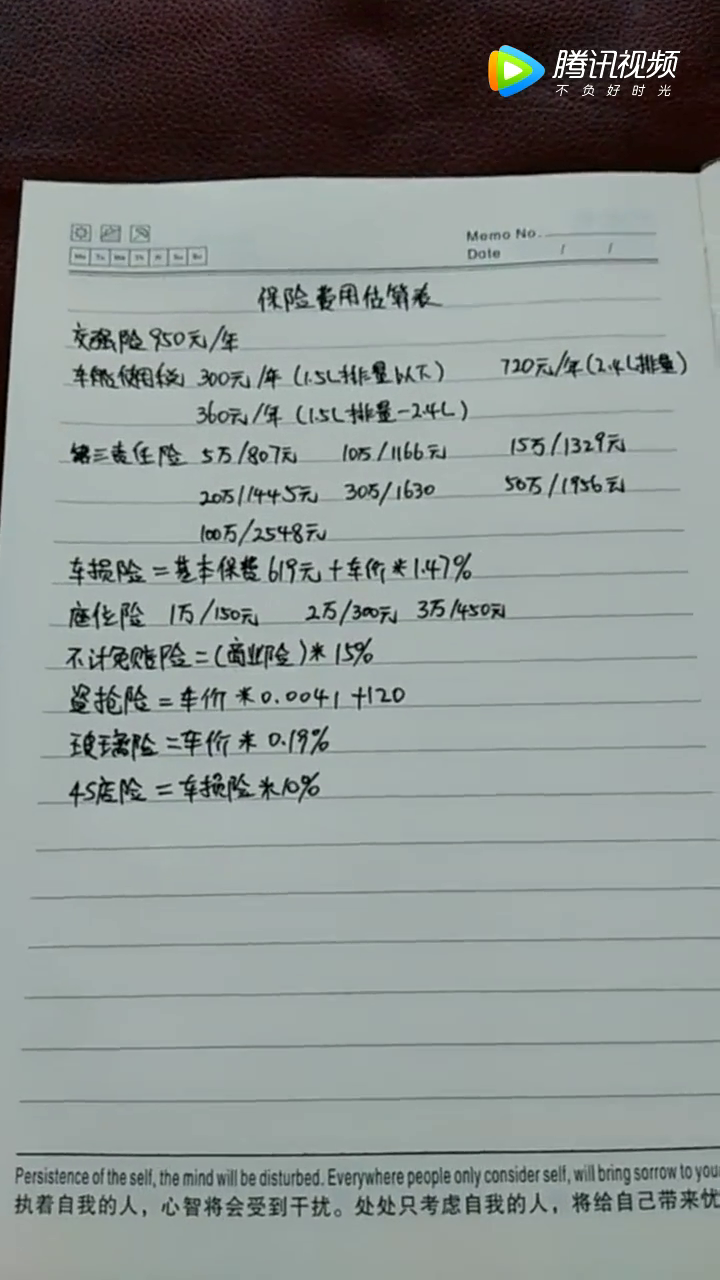 腾讯视频
不负好时光
Memo No.
Date / /
Mo Tu We Th Fr Sa Su
保险费用估算表
交强险 950元/年
车船使用税 300元/年 (1.5L排量以下) 720元/年 (2.4L排量)
360元/年 (1.5L排量-2.4L)
第三责任险 5万/807元 10万/1166元 15万/1329元
20万/1445元 30万/1630 50万/1956元
100万/2548元
车损险=基本保费619元+车价*1.47%
座位险 1万/150元 2万/300元 3万/450元
不计免赔险=(商业险)*15%
盗抢险=车价*0.0041+120
玻璃险=车价*0.19%
4S店险=车损险*10%
Persistence of the self, the mind will be disturbed. Everywhere people only consider self, will bring sorrow to you
执着自我的人，心智将会受到干扰。处处只考虑自我的人，将给自己带来忧